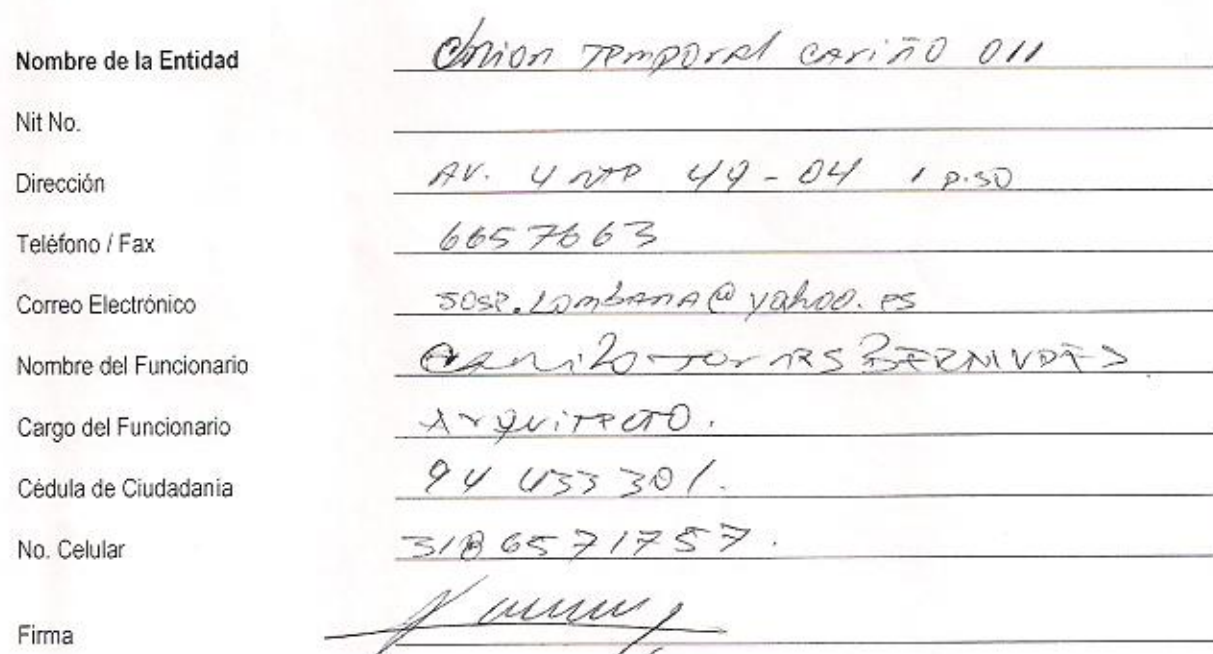 Nombre de la Entidad Union Temporal cariño 011
Nit No.
Dirección AV. 4 NTP 49-04 1 piso
Teléfono / Fax 6657663
Correo Electrónico jose.Lombana@yahoo.es
Nombre del Funcionario Camilo Torres BERMUDES
Cargo del Funcionario Arquitecto.
Cédula de Ciudadania 94 433 301.
No. Celular 318 6571757.
Firma